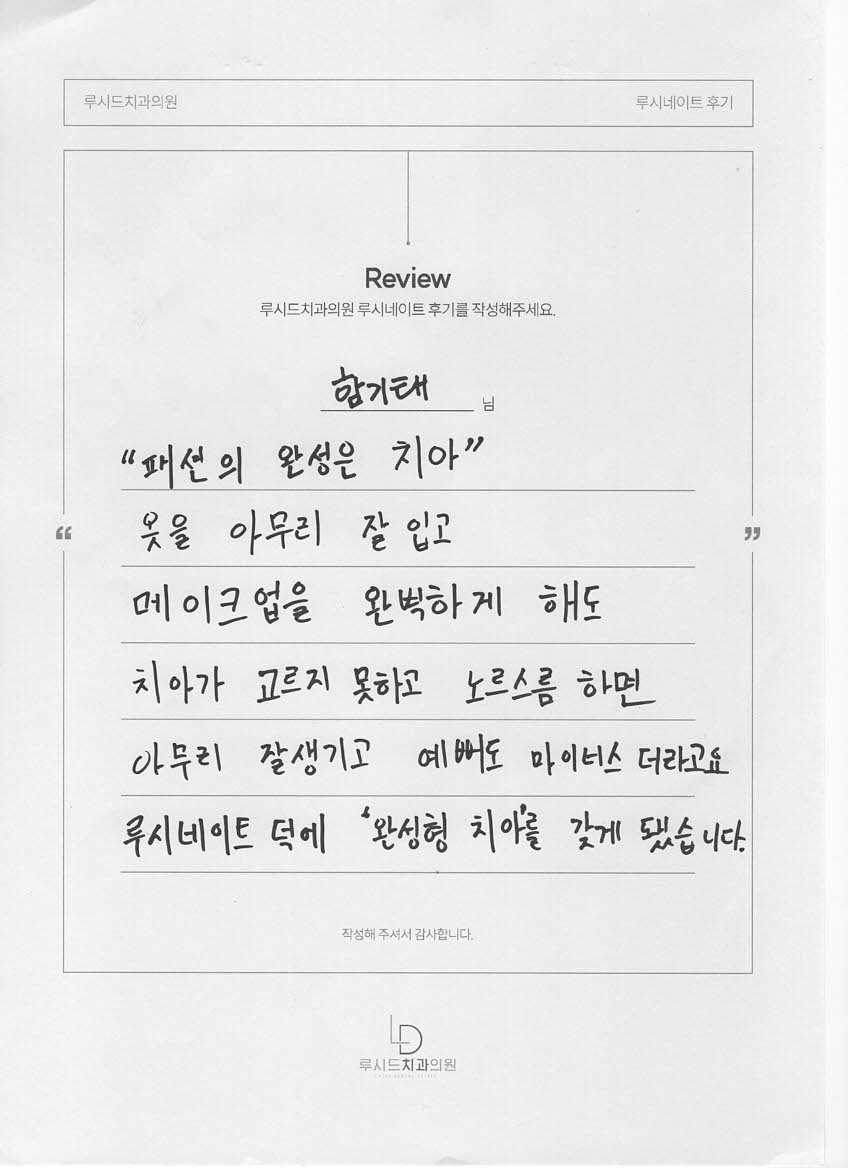 루시드치과의원
루시네이트 후기
Review
루시드치과의원 루시네이트 후기를 작성해주세요.
함기태 님
“패션의 완성은 치아”
옷을 아무리 잘 입고
“ 메이크업을 완벽하게 해도 ”
치아가 고르지 못하고 노르스름 하면
아무리 잘생기고 예뻐도 마이너스 더라고요
루시네이트 덕에 '완성형 치아'를 갖게 됐습니다.
작성해 주셔서 감사합니다.
LD
루시드치과의원